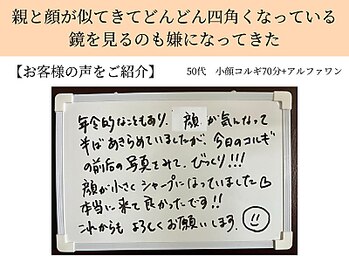 親と顔が似てきてどんどん四角くなっている
鏡を見るのも嫌になってきた
【お客様の声をご紹介】
50代 小顔コルギ70分+アルファワン
年令的なこともあり、顔が気になって
半ばあきらめていましたが、今日のコルギ
の前后の写真をみて、びっくり!!!
顔が小さくシャープになっていました
本当に来て良かったです!!
これからもよろしくお願いします。